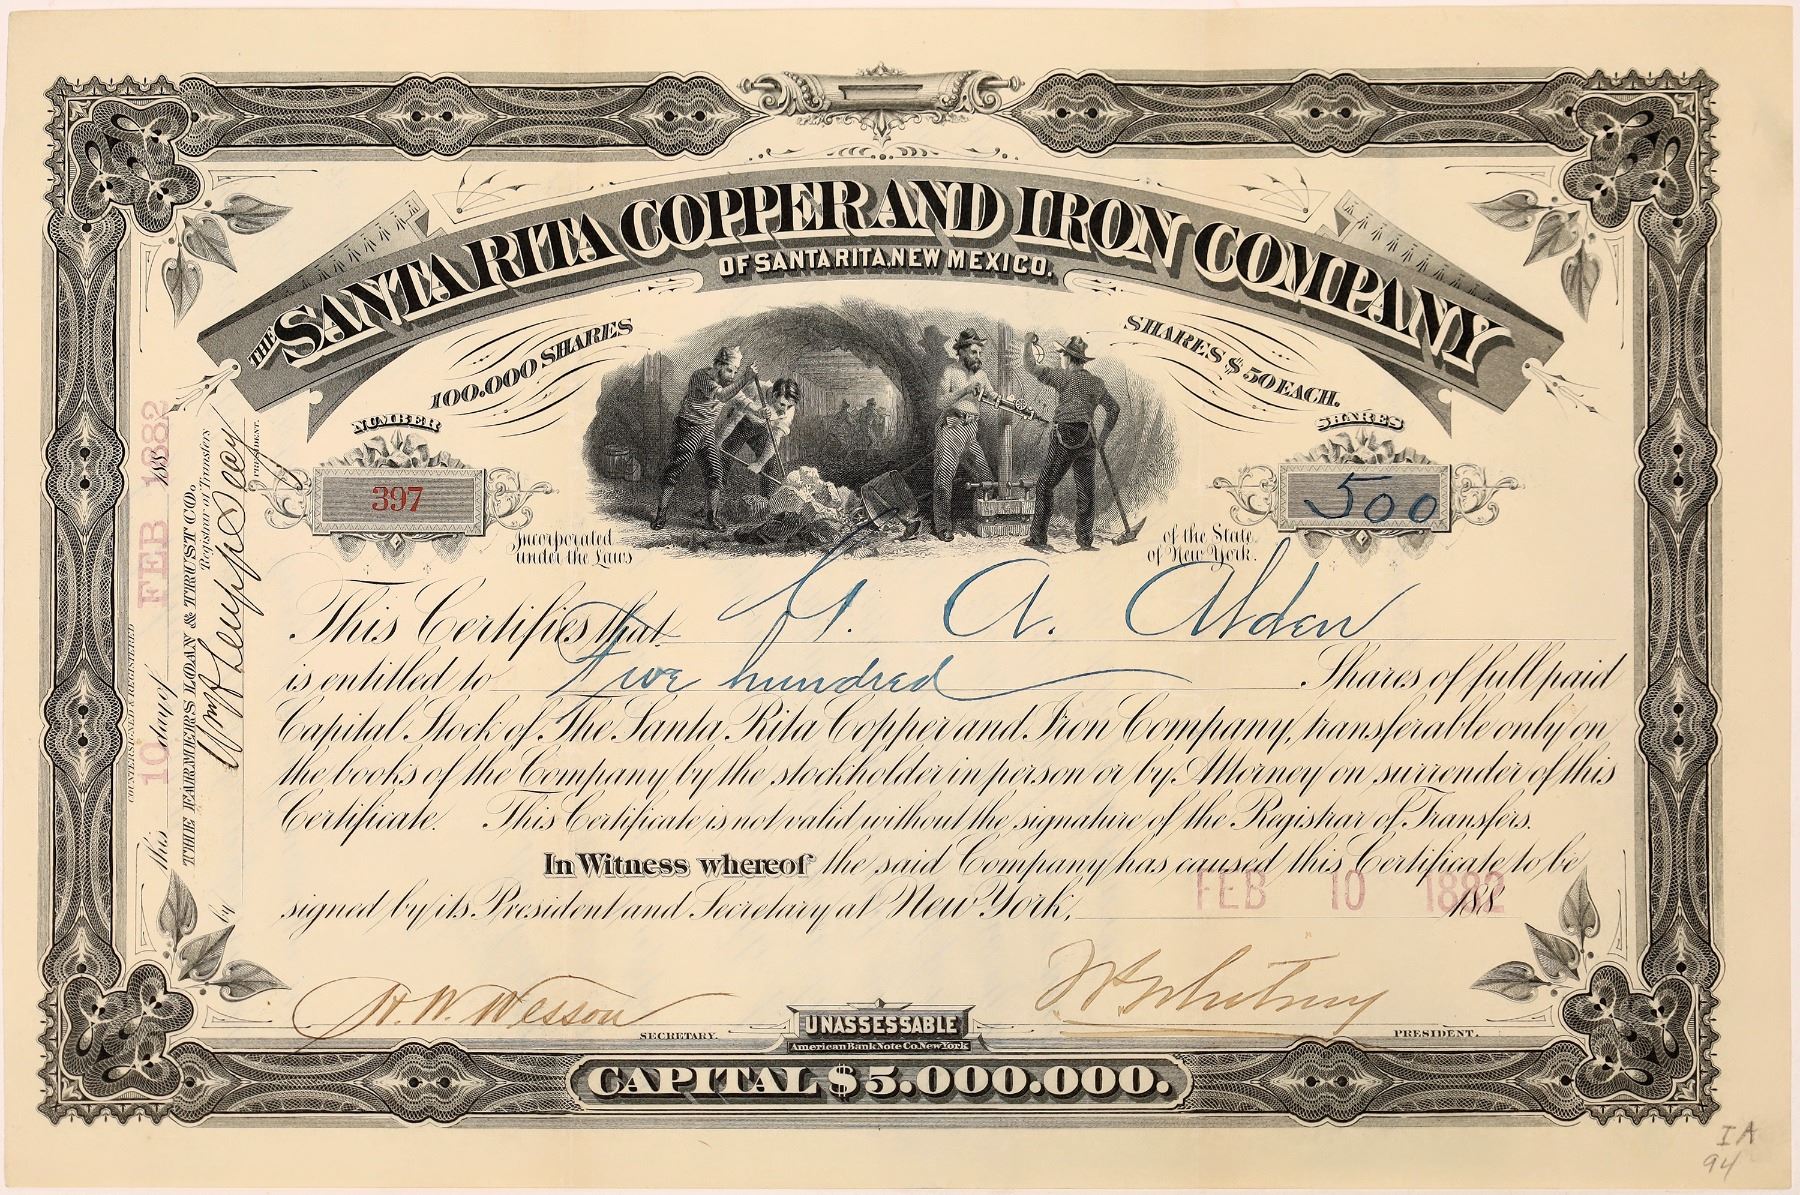 THE SANTA RITA COPPER AND IRON COMPANY
OF SANTA RITA, NEW MEXICO.
100.000 SHARES
SHARES $50 EACH.
NUMBER
397
SHARES
500
Incorporated under the Laws
of the State of New York.
This Certifies that A. Alden
is entitled to Five hundred Shares of full paid
Capital Stock of The Santa Rita Copper and Iron Company, transferable only on
the books of the Company by the stockholder in person or by Attorney on surrender of this
Certificate. This Certificate is not valid without the signature of the Registrar of Transfers.
In Witness whereof the said Company has caused this Certificate to be
signed by its President and Secretary at New York, FEB 10 1882 188
H. W. Wesson
SECRETARY.
Whitney
PRESIDENT.
UNASSESSABLE
American Bank Note Co. New York
CAPITAL $5.000.000.
COUNTERSIGNED & REGISTERED
this 10 day of FEB 1882 188
THE FARMERS LOAN & TRUST CO.
Registrar of Transfers
by
PRESIDENT.
IA
94